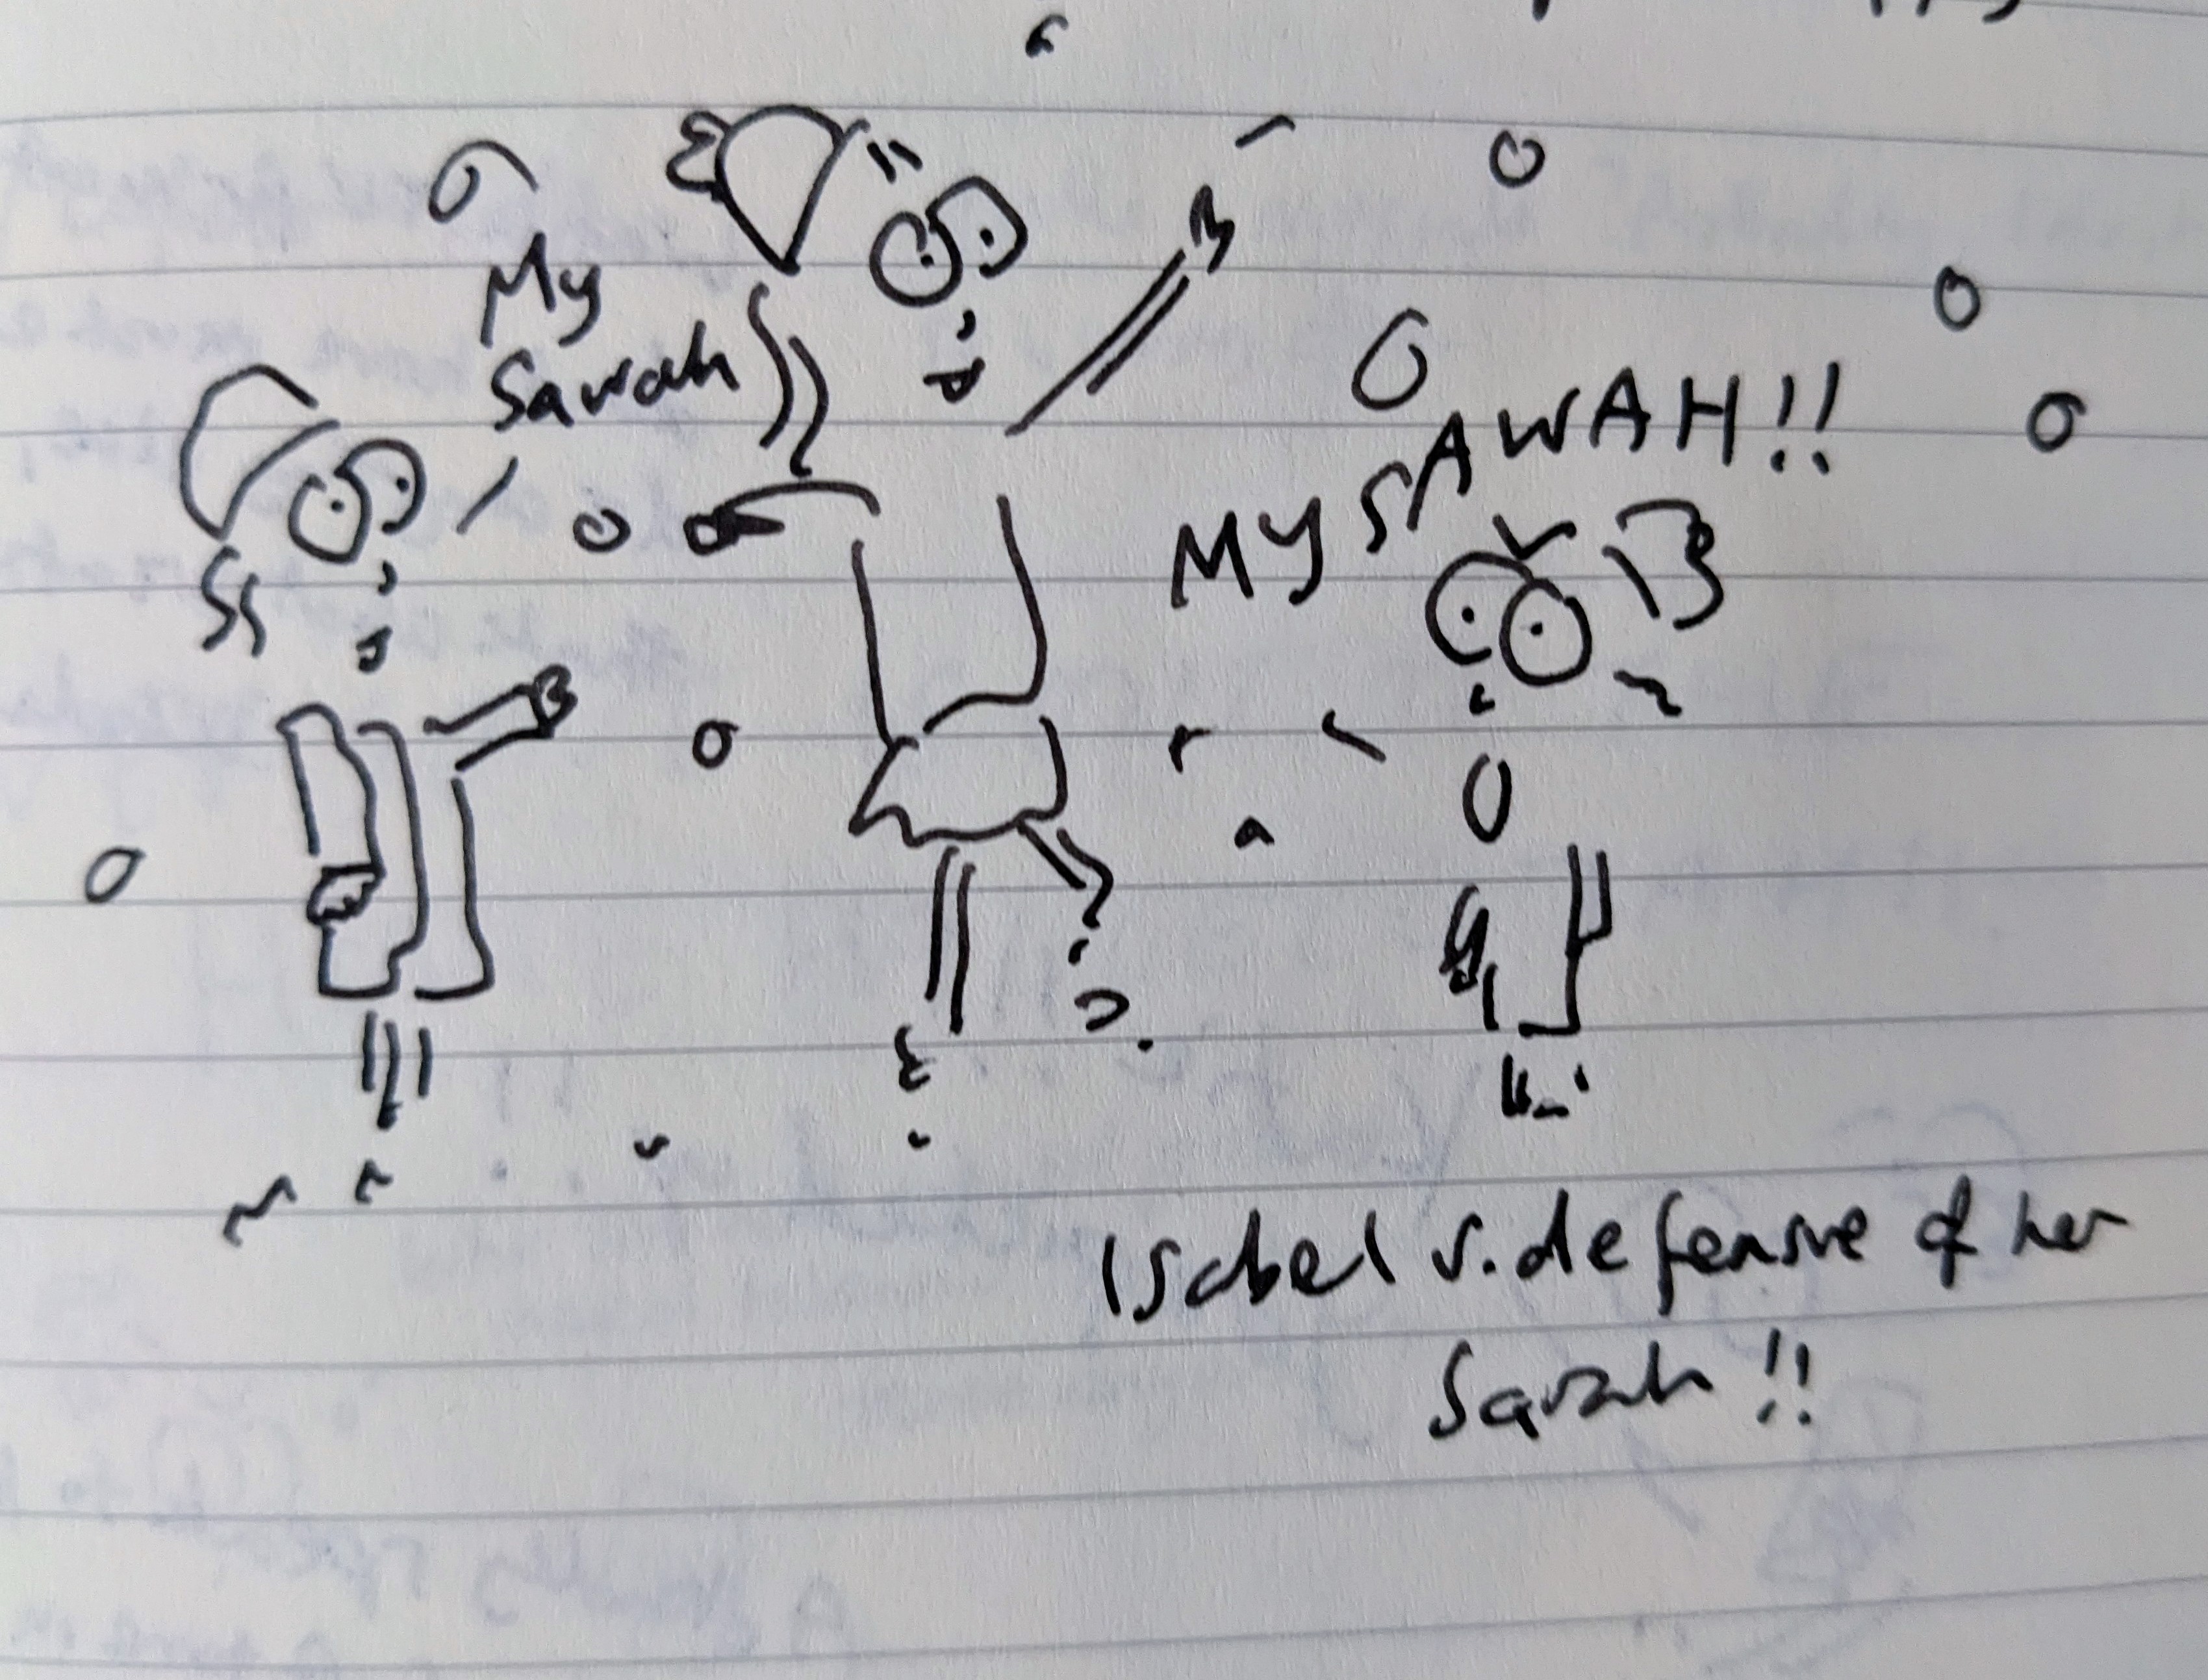 My
Sawah
MY SAWAH!!
Isabel v. defensive of her
Sarah!!